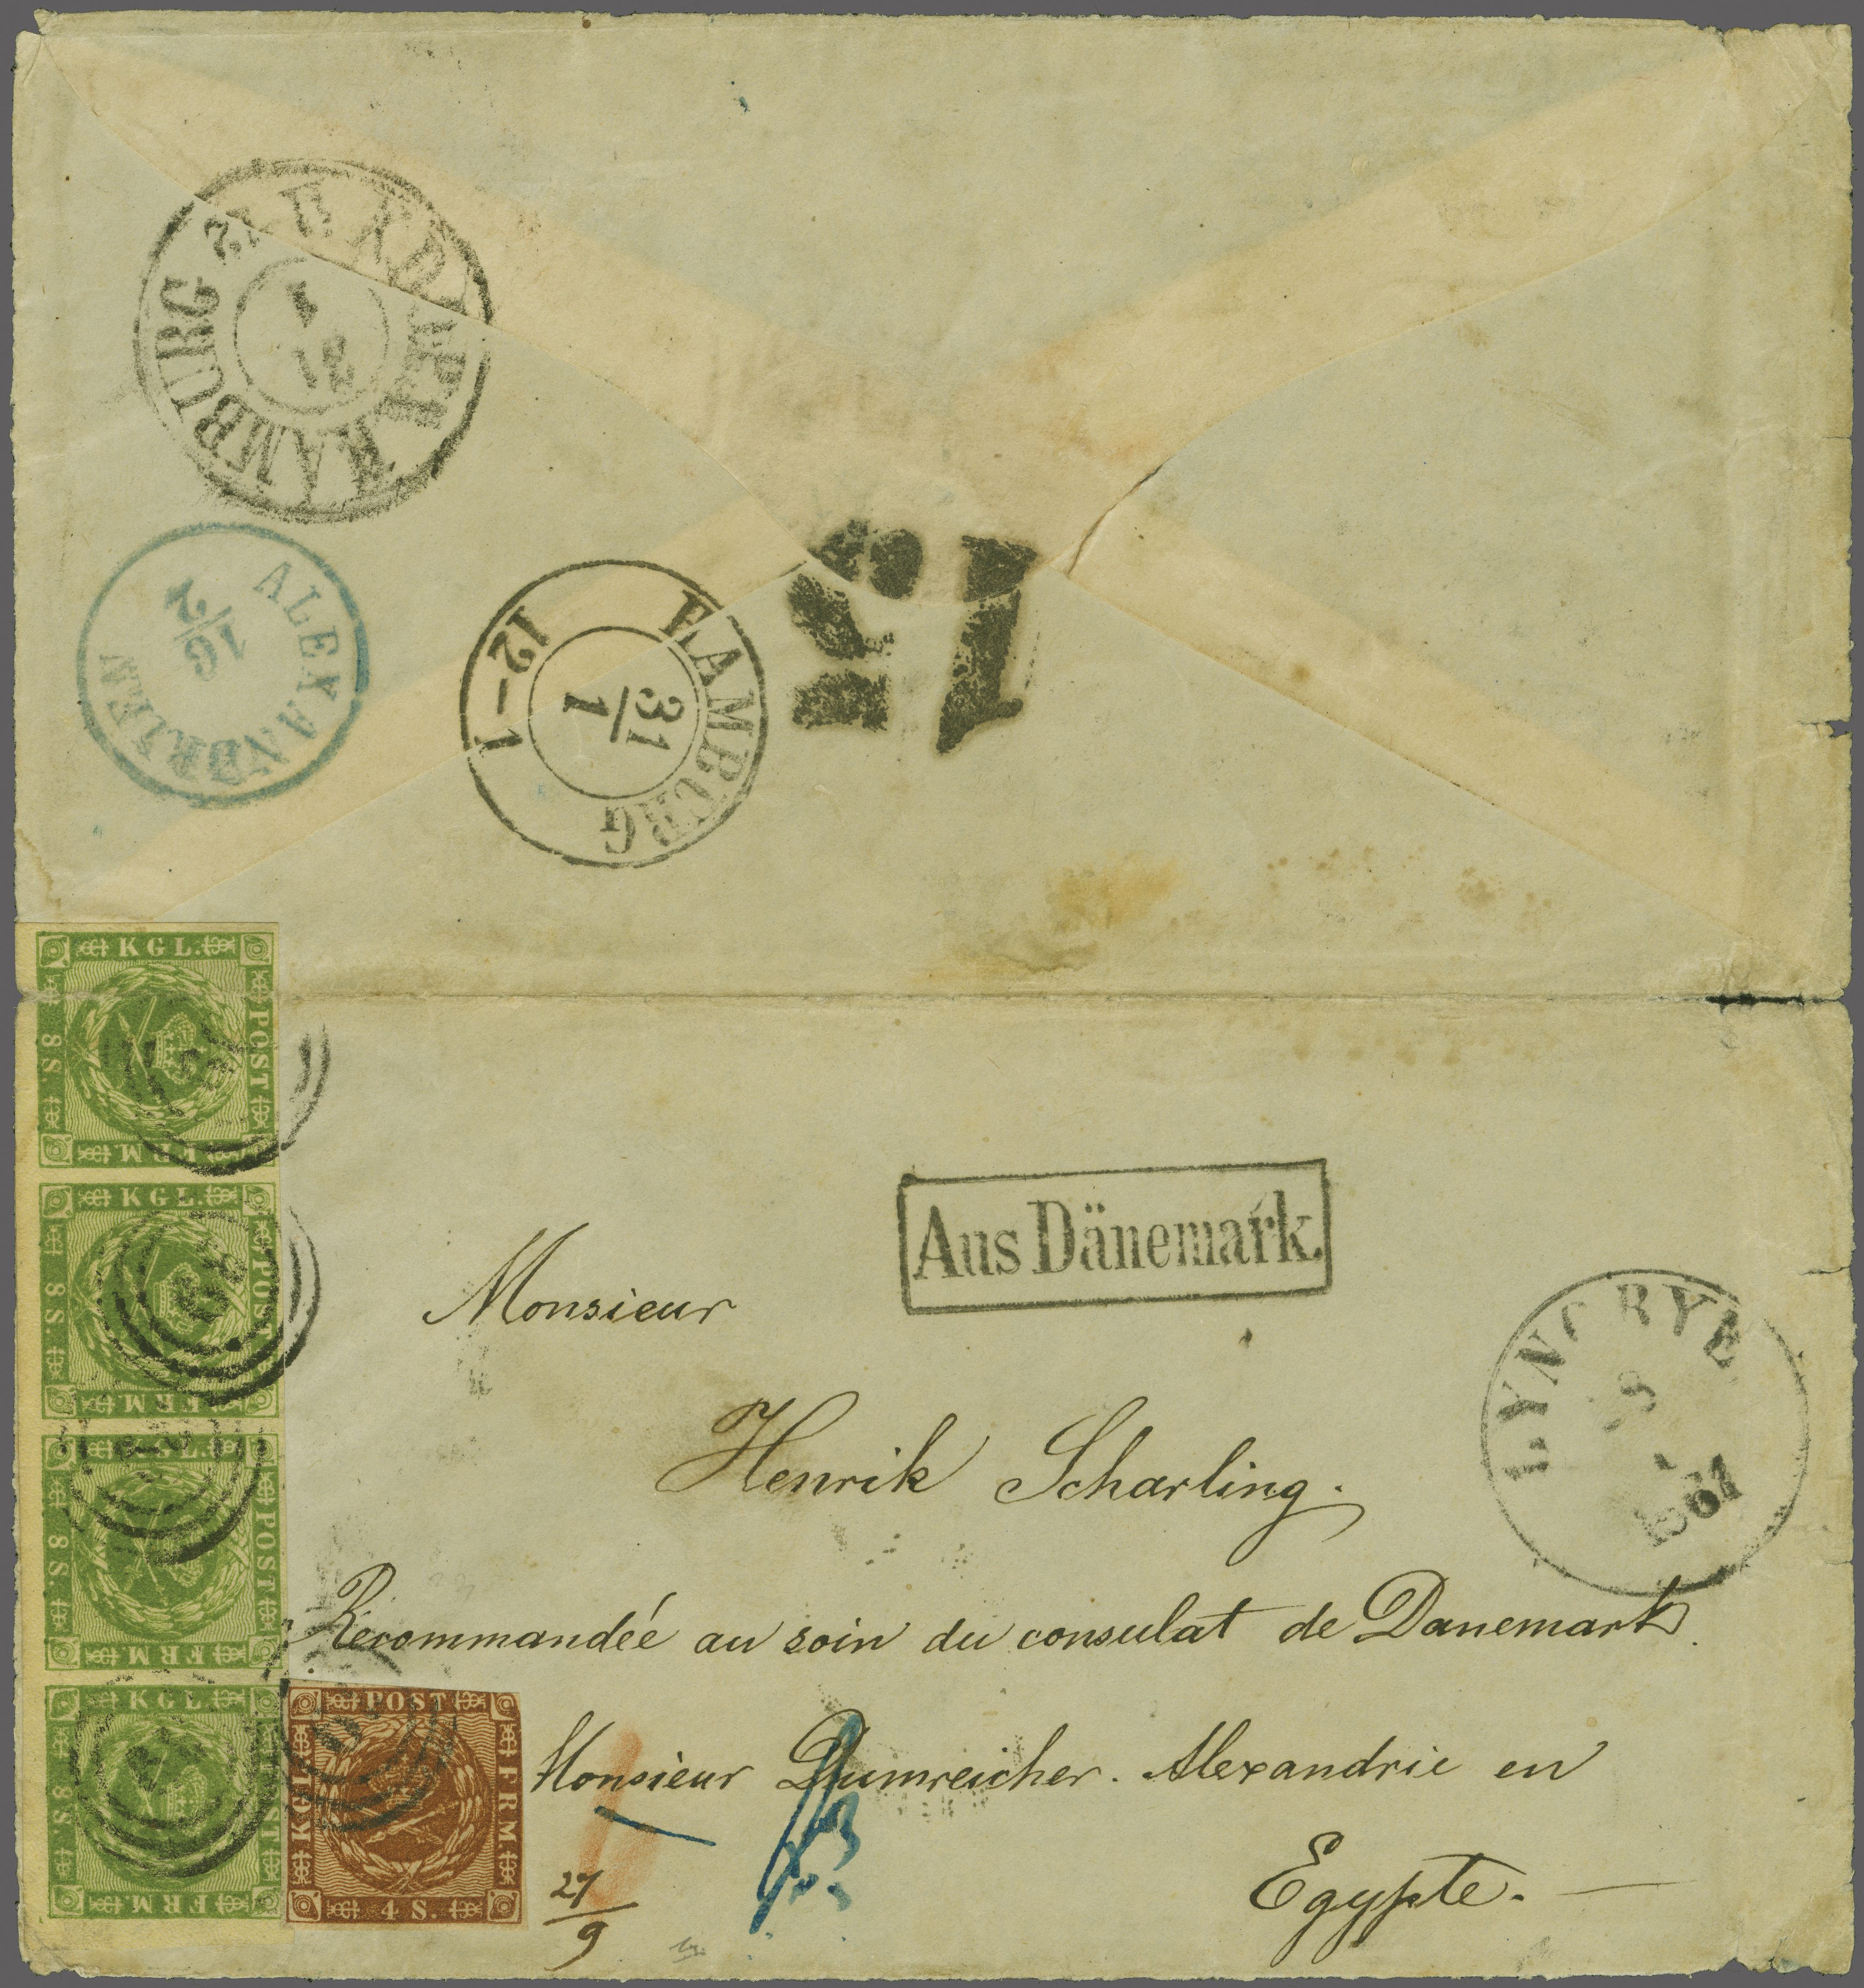 K.D.O.P.E. HAMBURG
1
31
ALEXANDRIEN
16/2
HAMBURG
31/1
12-1
15
KGL. POST FRM. 8 S.
KGL. POST FRM. 8 S.
KGL. POST FRM. 8 S.
KGL. POST FRM. 8 S.
Aus Dänemark.
Monsieur
LYNGBYE
1861
Henrik Scharling.
Recommandée au soin du consulat de Danemark.
KGL. POST FRM. 4 S.
Monsieur Dumreicher. Alexandrie en
Egypte.
27/9